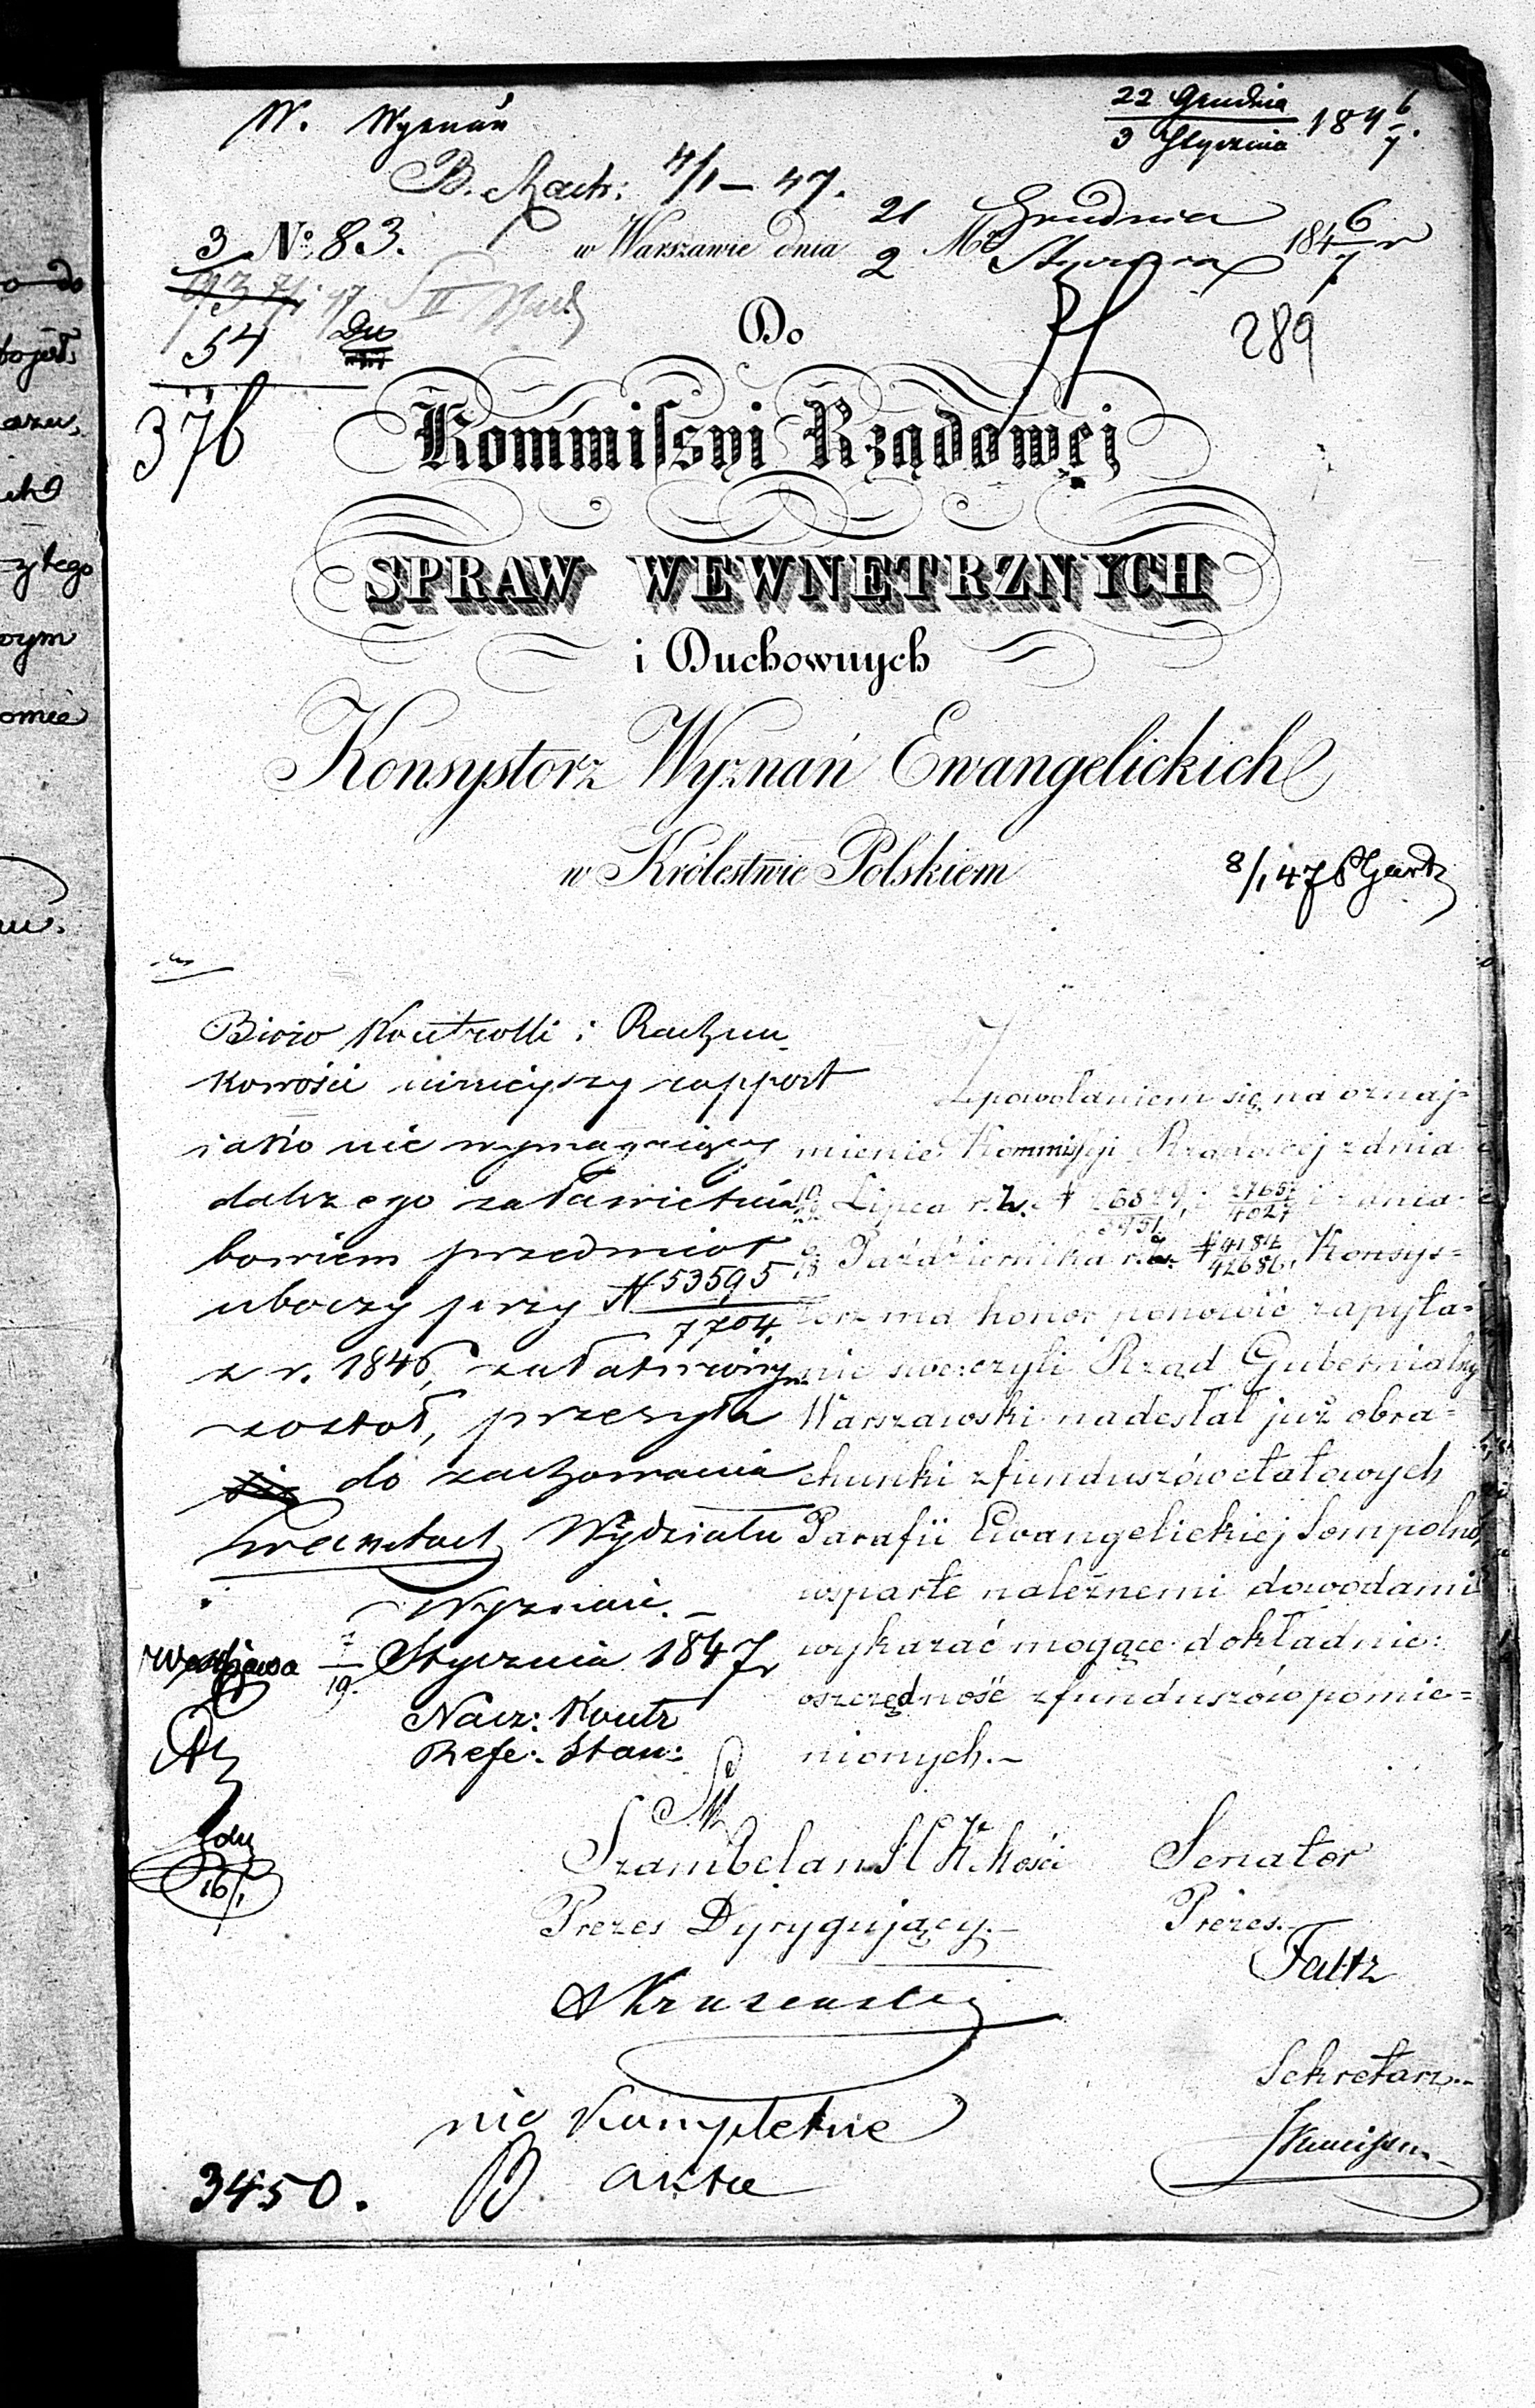 W. Wyznań
22 Grudnia
3 Stycznia 184 6/7.
B. Rach: 4/1 – 47.
3 № 83.
w Warszawie dnia 21 Mca Grudnia 184 6 r
2 Stycznia 7
54
II
376
289
Do
Kommissyi Rządowéj
SPRAW WEWNĘTRZNYCH
i Duchownych
Konsystorz Wyznań Ewangelickich
w Królestwie Polskiem
8/1 47
Bióro Kontrolli i Rachun-
kowości niniejszy rapport
iako nie wymagaiący
dalszego załatwienia
bowiem przedmiot
uboczy przy N 53595
7704.
z r. 1846, załatwiony
został, przesyła
się do zachowania
Wydziału
Wyznań. –
7
19. Stycznia 1847 r
Nacz: Kontr
Refe: Stan:
16/1
Z powołaniem się na oznaj=
mienie Kommissyi Rządowéj z dnia
Lipca r. z. N 27657 i z dnia
4027
Października r. z. N 4184
42686, Konsys=
torz ma honor ponowić zapyta=
nie swe: czyli Rząd Gubernialny
Warszawski nadesłał już obra=
chunki z funduszów etatowych
Parafii Ewangelickiej Sompolno,
wsparte należnemi dowodami
wykazać mogące dokładnie:
oszczędność z funduszów pomie=
nionych. –
Szambelan
Prezes Dyrygujący. –
Senator
Prezes. –
Faltz
Sekretarz. –
nie kompletne
akta
3450.